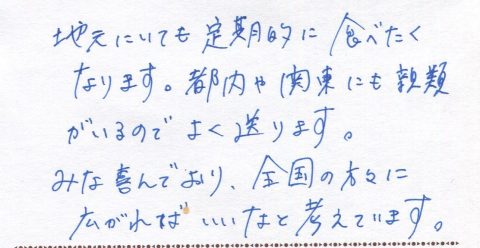 地元にいても定期的に食べたく
なります。都内や関東にも親類
がいるのでよく送ります。
みな喜んでおり、全国の方々に
広がればいいなと考えています。